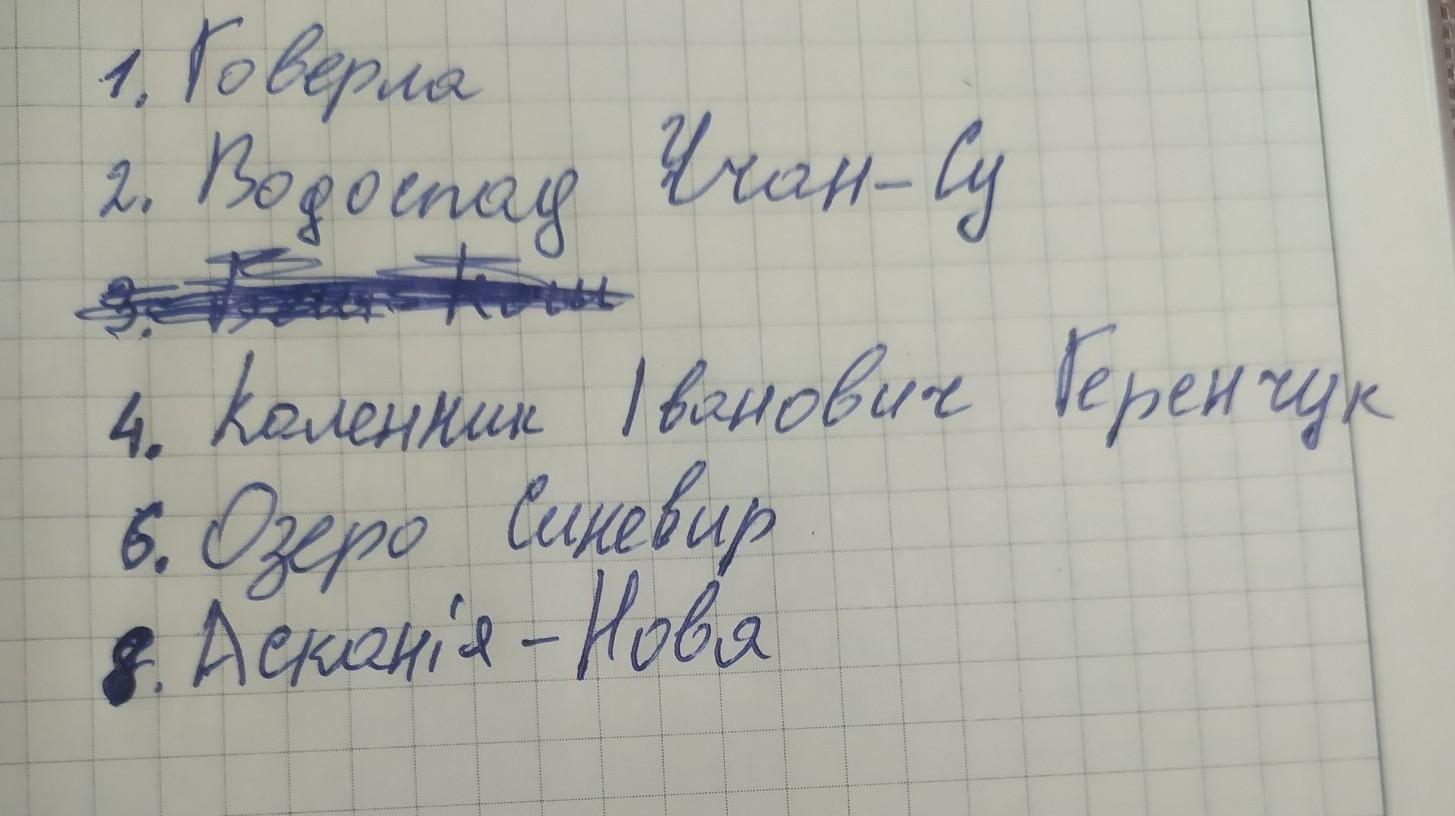 1. Говерла
2. Водоспад Учан-Су
4. Каленник Іванович Геренчук
6. Озеро Синевир
8. Асканія-Нова